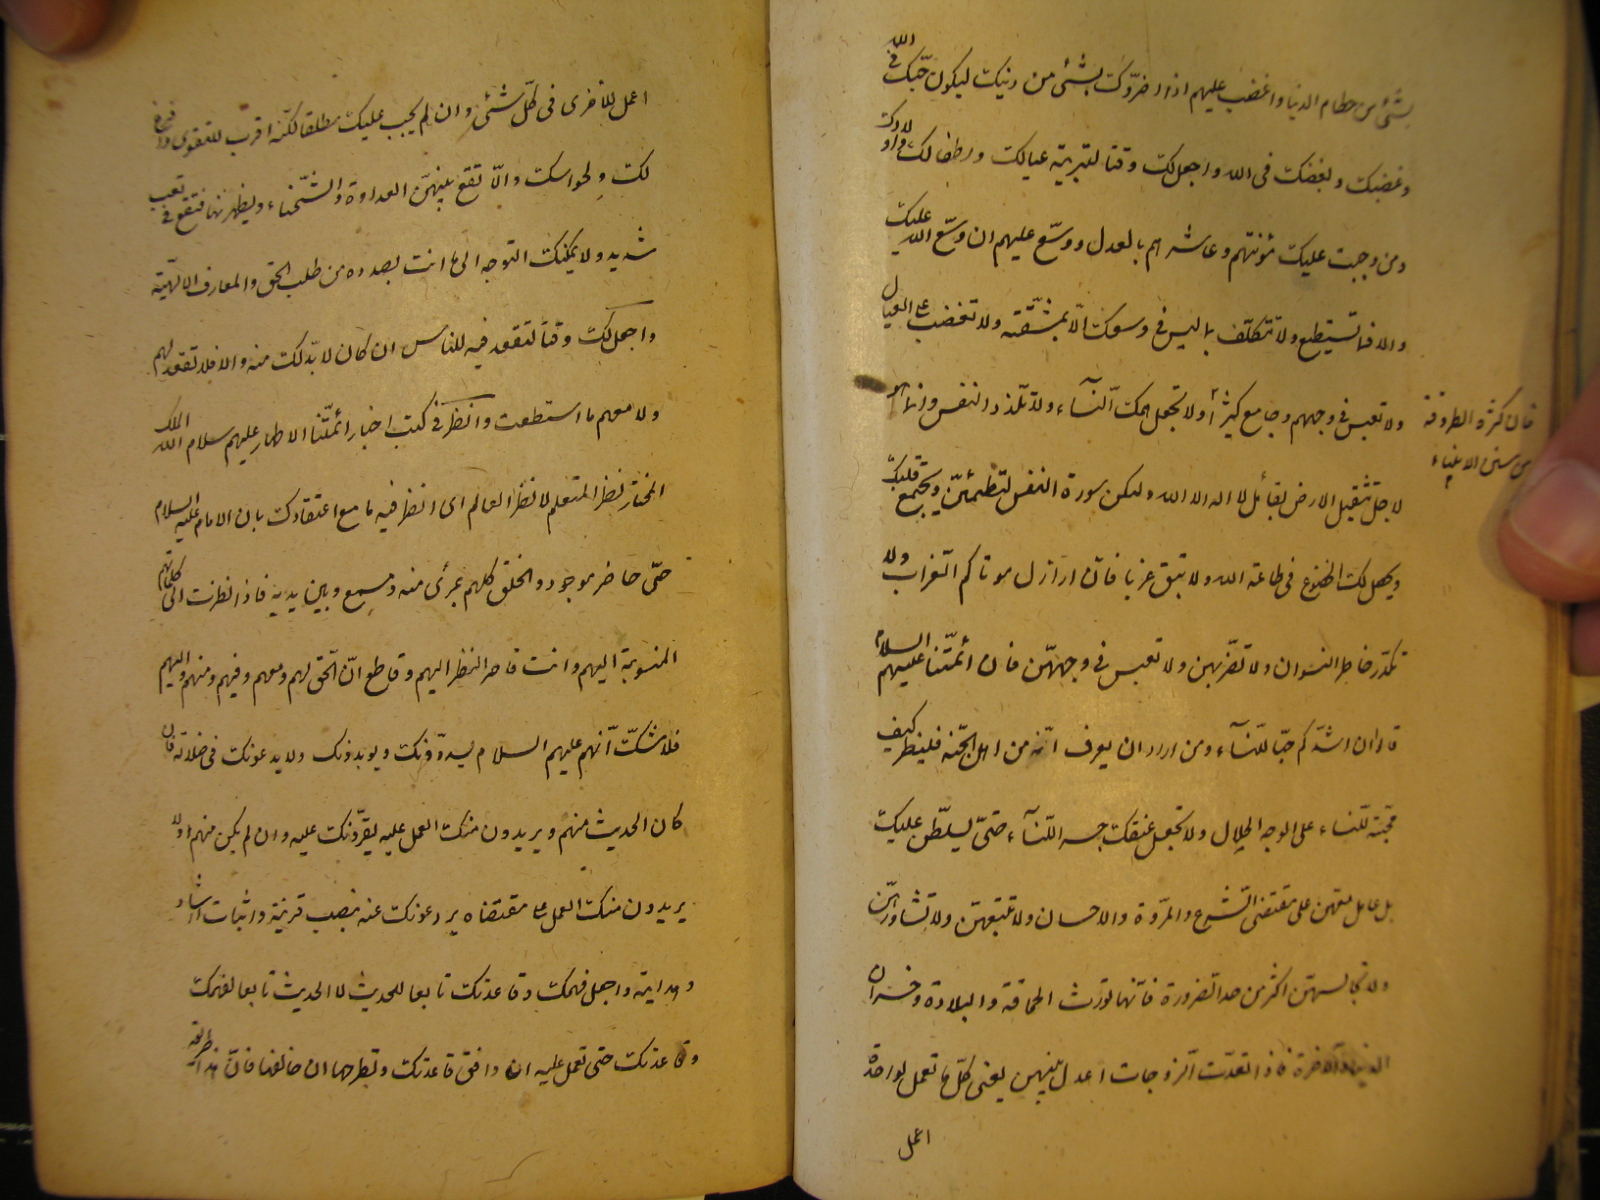 بشئ من حطام الدنيا واغضب عليهم اذا ضروك بشئ من دينك ليكون حبك في الله
وغضبك وبغضك في الله واجعل لك وقتا لتربية عيالك واطفالك واولادك
ومن وجبت عليك مؤنتهم وعاشرهم بالعدل ووسّع عليهم ان وسّع الله عليك
والا فما تستطيع ولا تتكلف ما ليس في وسعك الّا بمشقّة ولا تغضب على العيال
ولا تعبس في وجههم وجامع كثيرا ولا تجعل همك النساء ولا تلذذ النفس وانما هو
فان كثرة الطروقة
من سنن الانبياء
لاجل تثقيل الارض بقائل لا اله الا الله وليكن سورة النفس لتطمئنّ ويجتمع قلبك
ويحصل لك الخضوع في طاعة الله ولا تبق عزبا فان اراذل موتاكم العزاب ولا
تكدّر خاطر النسوان ولا تضربهن ولا تعبس في وجههنّ فان ائمّتنا عليهم السلام
قالوا ان اشدّكم حبّا للنساء ومن اراد ان يعرف انّه من اهل الجنّة فلينظر كيف
محبته للنساء على الوجه الحلال ولا تجعل عنقك جسر النساء حتّى يسلّطن عليك
بل عامل معهن على مقتضى الشرع والمروّة والاحسان ولا تتبعهنّ ولا تشاورهنّ
ولا تجالسهنّ اكثر من حد الضرورة فانّها تورث الحماقة والبلادة وخسران
الدنيا والآخرة فاذا تعدّدت الزوجات اعدل بينهن يعني كلّ ما تعمل لواحدة
اعمل
اعمل للاخرى في كلّ شئ وان لم يجب عليك مطلقا لكنّه اقرب للتقوى وافرغ
لك ولحواسك والّا تقع بينهنّ العداوة والشّحناء ويظهرنها فتقع في تعب
شديد ولا يمكنك التوجه الى ما انت بصدده من طلب الحق والمعارف الالهيّة
واجعل لك وقتاً لتقعد فيه للناس ان كان لا بدّ لك منه والا فلا تقعد لهم
ولا معهم ما استطعت وانظر في كتب اخبار ائمّتنا الاطهار عليهم سلام الله الملك
المختار نظر المتعلم لا نظر العالم اى انظر فيه مع اعتقادك بان الامام عليه السلام
حىّ حاضر موجود والخلق كلهم بمرئ منه ومسمع وبين يديه فاذا نظرت الى كلماتهم
المنسوبة اليهم وانت قاصر النظر اليهم وقاطع انّ الحق لهم ومعهم وفيهم ومنهم واليهم
فلا شكّ انّهم عليهم السلام يسدّدونك ويؤيدونك ولا يدعونك في ضلالة فان
كان الحديث منهم ويريدون منك العمل عليه يقرّونك عليه وان لم يكن منهم اولا
يريدون منك العمل على مقتضاه يردعونك عنه بنصب قرينة واثبات ارشاد
وهداية واجعل فهمك وقاعدتك تابعا للحديث لا الحديث تابعا لفهمك
وقاعدتك حتى تعمل عليه ان وافق قاعدتك وتطرحها ان خالفها فان هذا طريقة